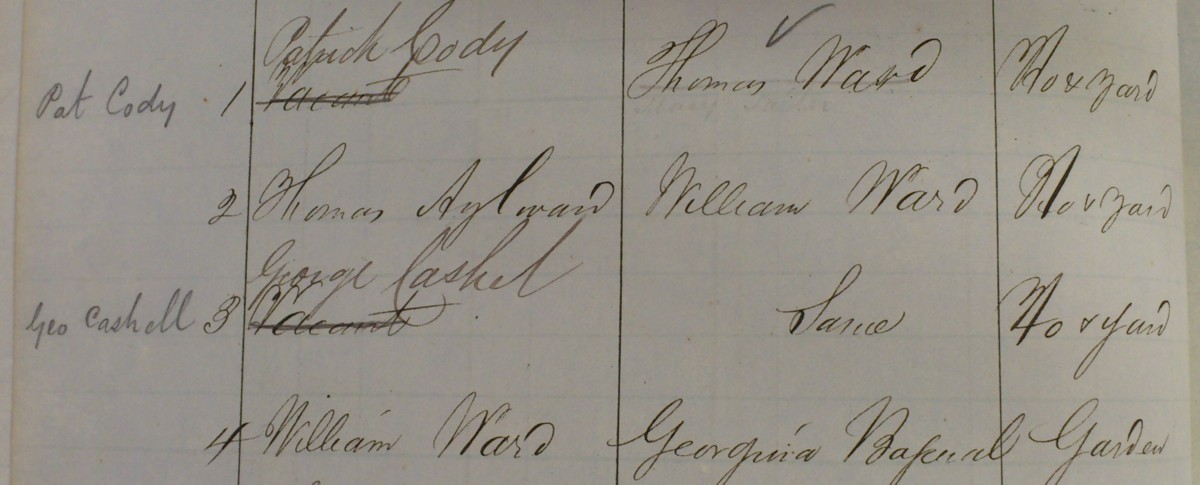 Patrick Cody
Pat Cody 1 Vacant Thomas Ward Ho & yard
2 Thomas Aylward William Ward Ho & yard
George Cashel
Geo Cashell 3 Vacant Same Ho & yard
4 William Ward Georgina Garden